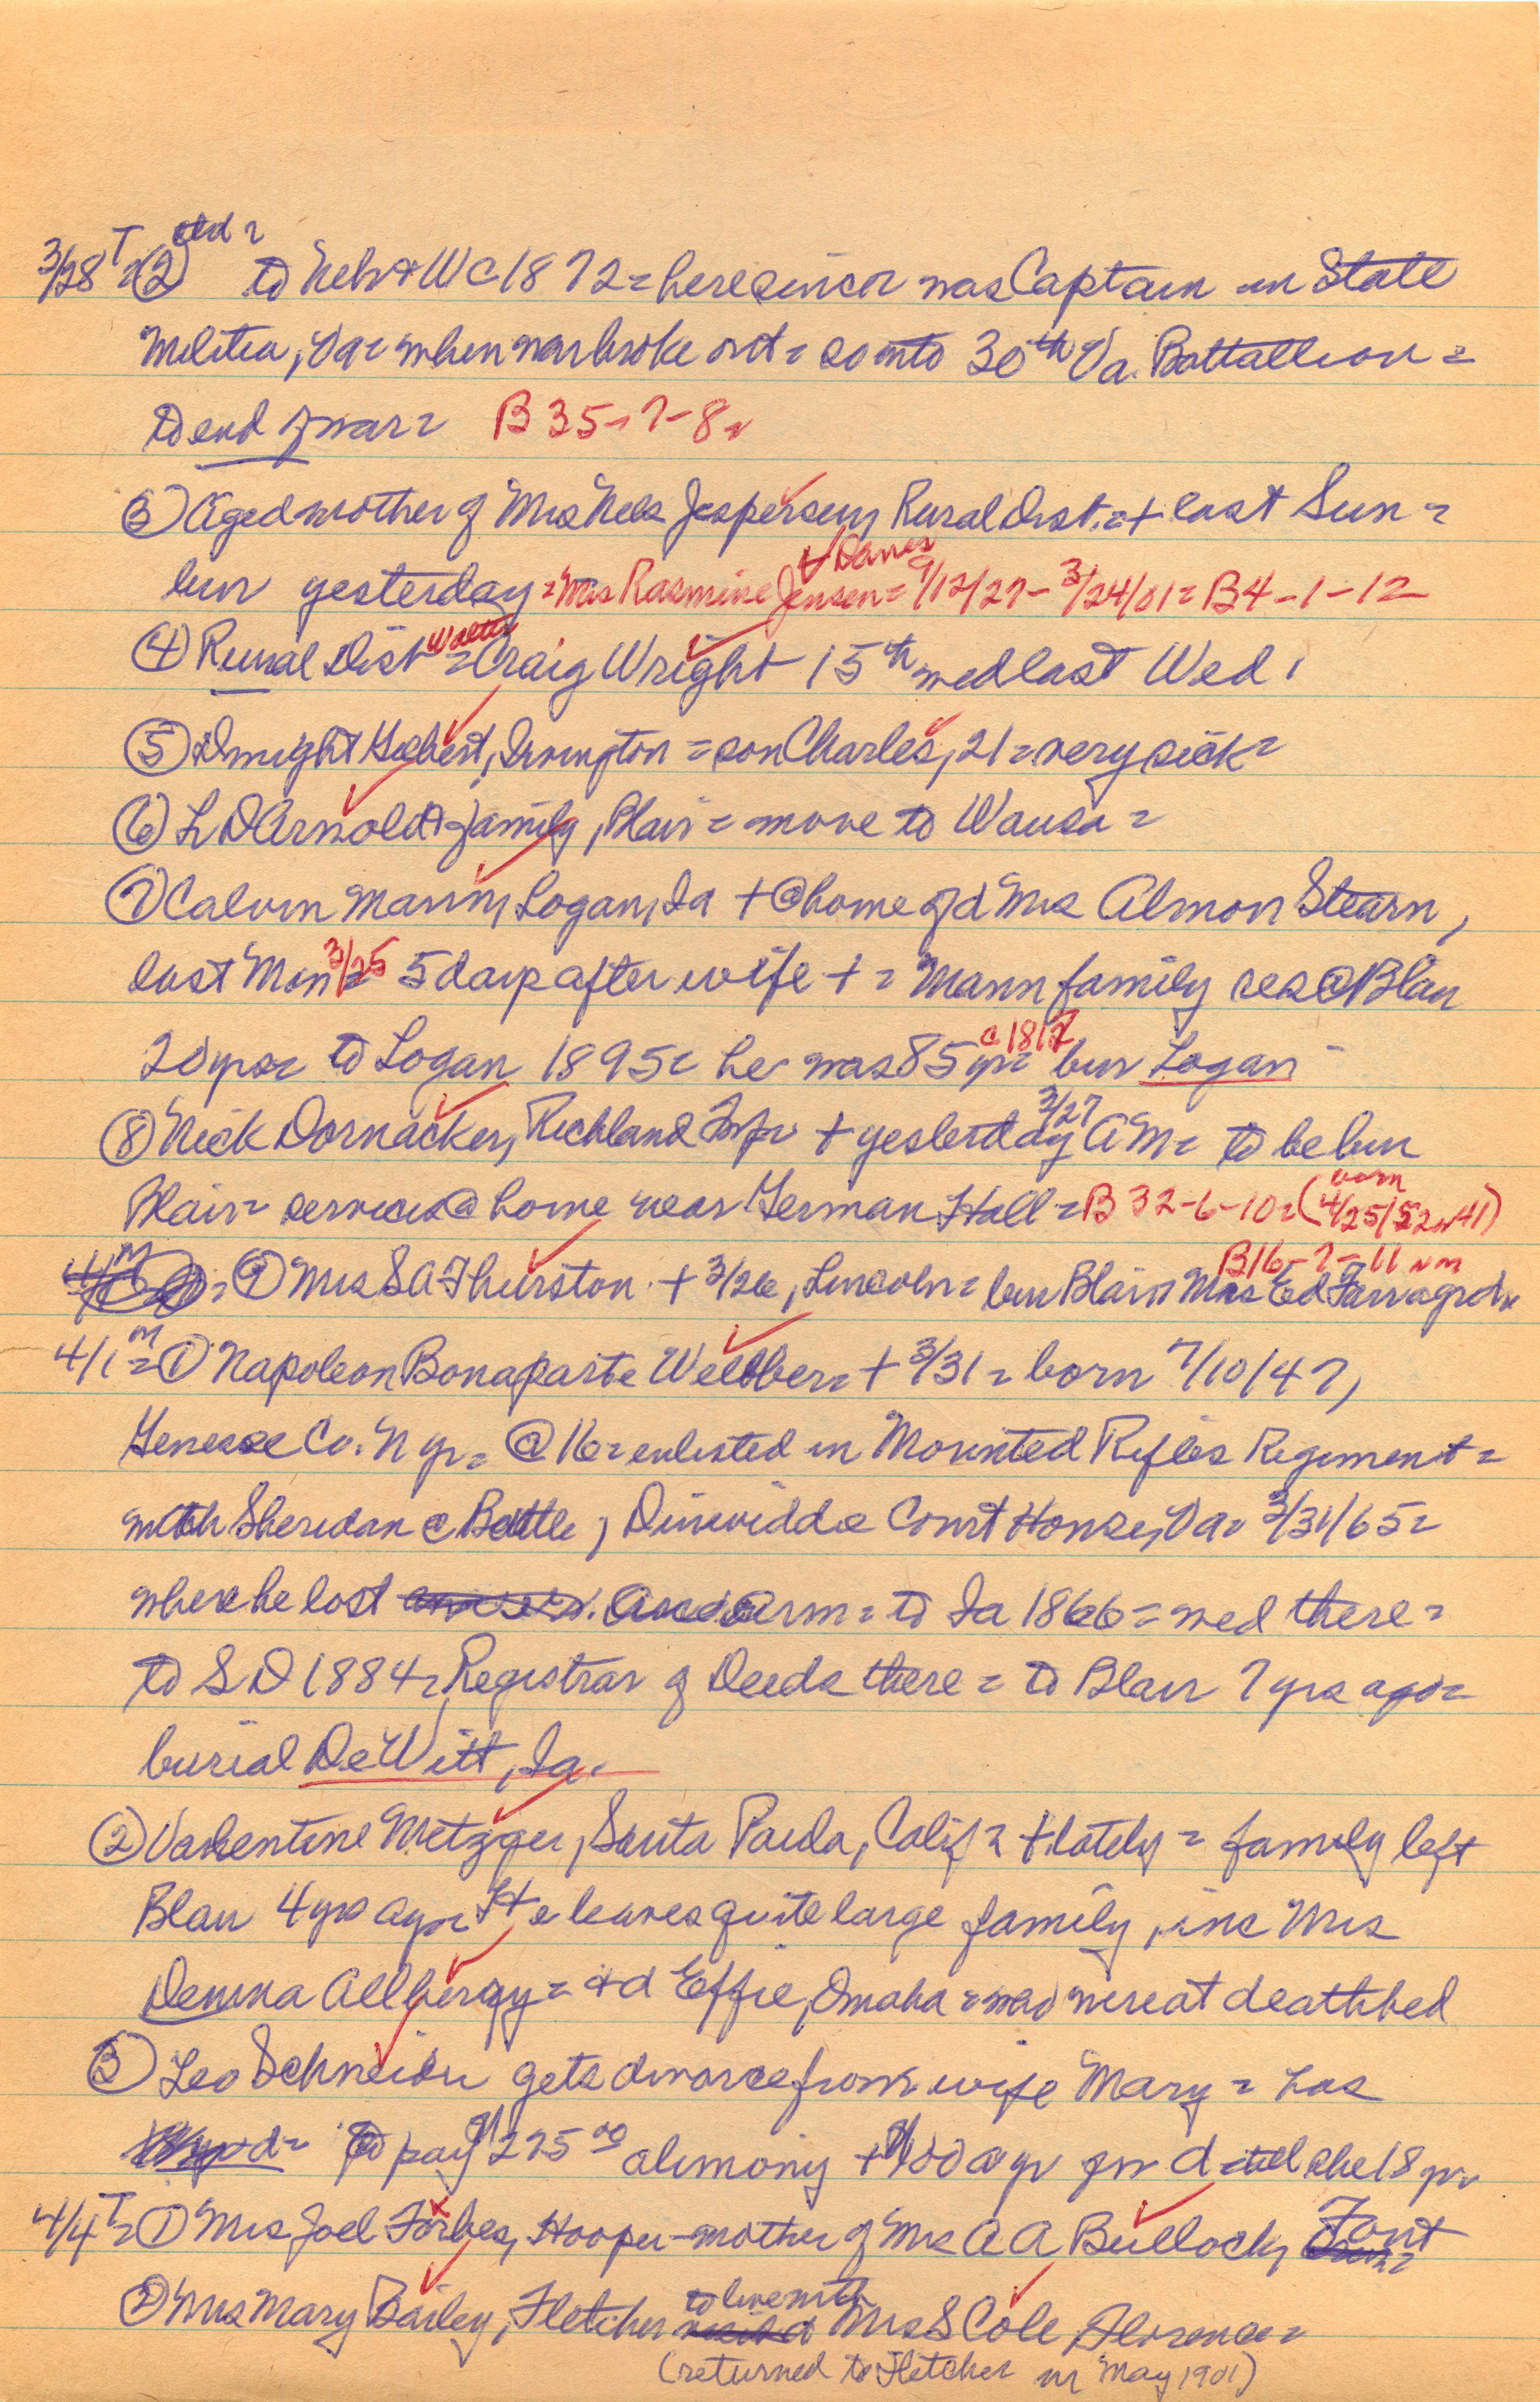 3/28 T = (2) ctd =
to Neb & WC 1872 = here since = was Captain in State
Militia, Va = when war broke out = so into 30th Va. Battallion =
to end of war = B 35-7-8 =
(3) Aged mother of Mrs Nels Jespersen, Rural Dist. = + last Sun =
& Danes
bur yesterday = Mrs Rasmine Jensen = 9/12/27 - 3/24/01 = B4-1-12
(4) Rural Dist = Walter Craig Wright 15th wed last Wed
(5) Dwight Hilbert, Irvington = son Charles, 21 = very sick =
(6) L D Arnold & family, Blair = move to Wausa =
(7) Calvin Mann, Logan, Ia + @ home of d Mrs Almon Stearn,
last Mon = 3/25 5 days after wife + = Mann family res @ Blair
20 yrs = to Logan 1895 = he was 85 yr = bur Logan
(8) Nick Dornacker, Richland Twp = + yesterday 3/27 AM = to be bur
Blair = services @ home near German Hall = B 32-6-10 = (born 4/25/52 41)
B16-7-11
= (9) Mrs S A Thurston + 3/26, Lincoln = bur Blair = Mrs Ed Farragrd
4/1 M = (1) Napoleon Bonaparte Wellber = + 3/31 = born 7/10/47,
Genesee Co. N y = @ 16 = enlisted in Mounted Rifles Regiment =
with Sheridan @ Battle of Dinwiddie Court House, Va = 3/31/65 =
where he lost arm = to Ia 1866 = wed there =
to S D 1884 = Registrar of Deeds there = to Blair 7 yrs ago =
burial DeWitt, Ia.
(2) Valentine Metzger, Santa Paula, Calif = + lately = family left
Blair 4 yrs ago = He leaves quite large family, inc Mrs
Allbery = & d Effie, Omaha = were at deathbed
(3) Leo Schneider gets divorce from wife Mary = has
to pay $225 00 alimony + $100 a yr for d till she 18 yr
4/4 T = (1) Mrs Joel Forbes, Hooper - mother of Mrs A A Bullock, Font
(2) Mrs Mary Bailey, Fletcher to live with Mrs S Cole, Florence =
(returned to Fletcher in May 1901)